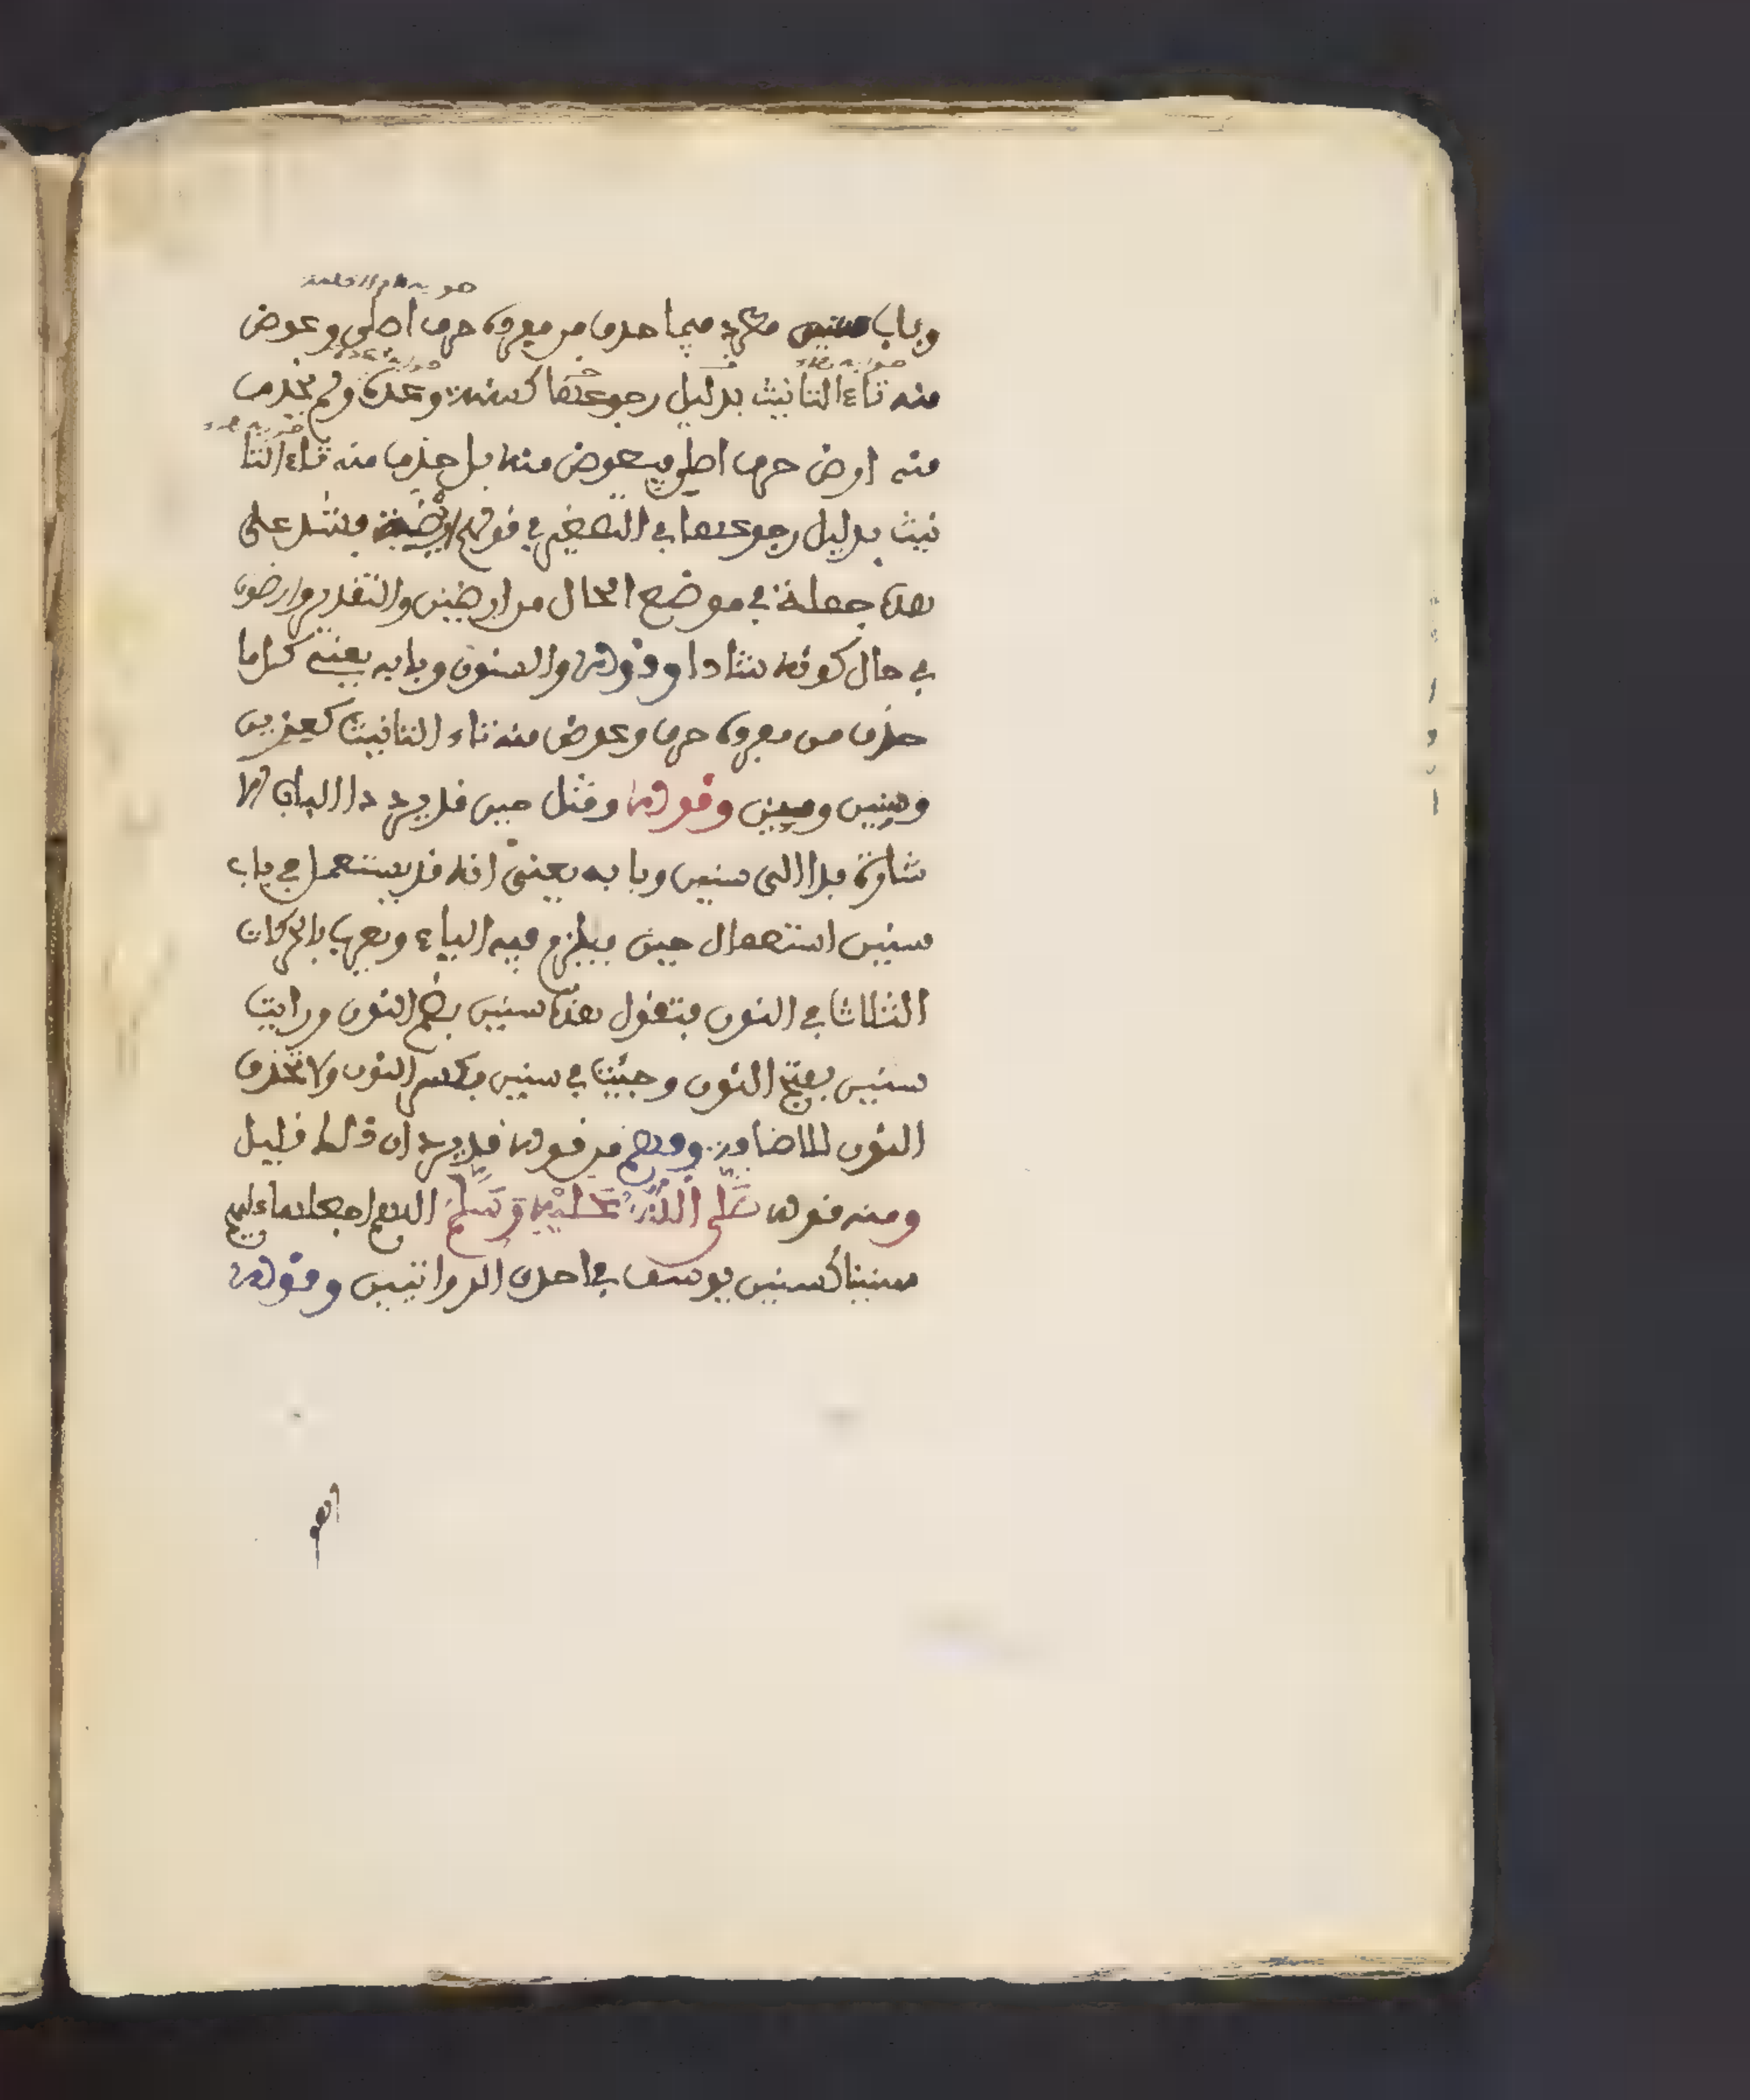 وباب سنين مطرد فيما حذف من مفرده حرف اصلي وعوض
منه تاء التانيث بدليل رجوعها كسنة وعدة ولم يحذف
منه ارض حرف اصلي فيعوض منه بل حذف منه تاء التا
نيث بدليل رجوعها في التصغير في قولهم اريضة فشذ على
هذا جملة في موضع الحال من ارضين والتقدير وارضون
في حال كونه شاذا وقوله والسنون وبابه يعني كل ما
حذف من مفرده حرف وعوض منه تاء التانيث كعزين
وميين وقوله ومثل حين قد يرد ذا الباب الا
شارة بذا الى سنين وبابه يعني انه قد يستعمل في باب
سنين استعمال حين فيلزم فيه الياء ويعرب بالحركات
الثلاث في النون فتقول هذه سنين بضم النون ورايت
سنين بفتح النون وجئت في سنين بكسر النون ولا تحذف
النون للاضافة وفهم من قوله قد يرد ان ذلك قليل
ومنه قوله صَلَّى اللَّهُ عَلَيْهِ وَسَلَّمَ اللهم اجعلها عليهم
سنينا كسنين يوسف في احدى الروايتين وقوله